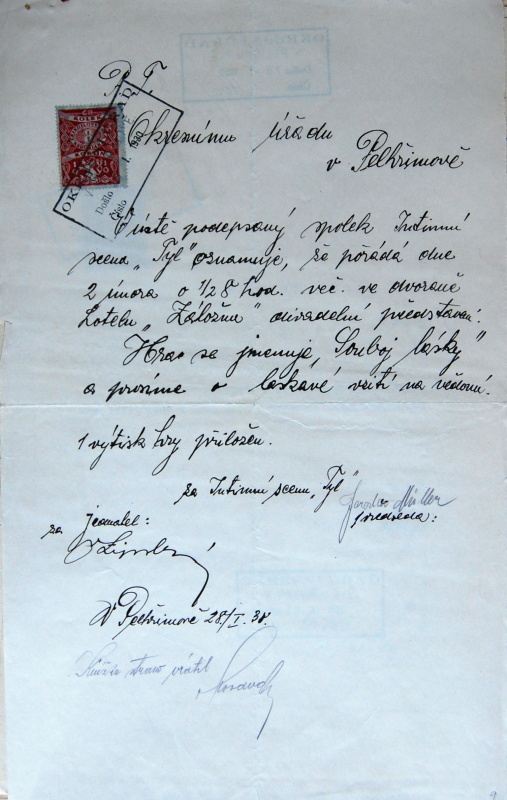 P. T.
Okresnímu Úřadu
v Pelhřimově
Došlo
Číslo
1930
Uctě podepsaný spolek Intimní
scena „Tyl" oznamuje, že pořádá dne
2 února o 1/28 hod. več. ve dvoraně
hotelu „Záložna" divadelní představení.
Hra se jmenuje „Souboj lásky"
a prosíme o laskavé vzití na vědomí.
1 výtisk hry přiložen.
za Intimní scenu „Tyl"
Jaroslav Müller
předseda:
za jednatel:
V Pelhřimově 28/I. 30.
vrátil